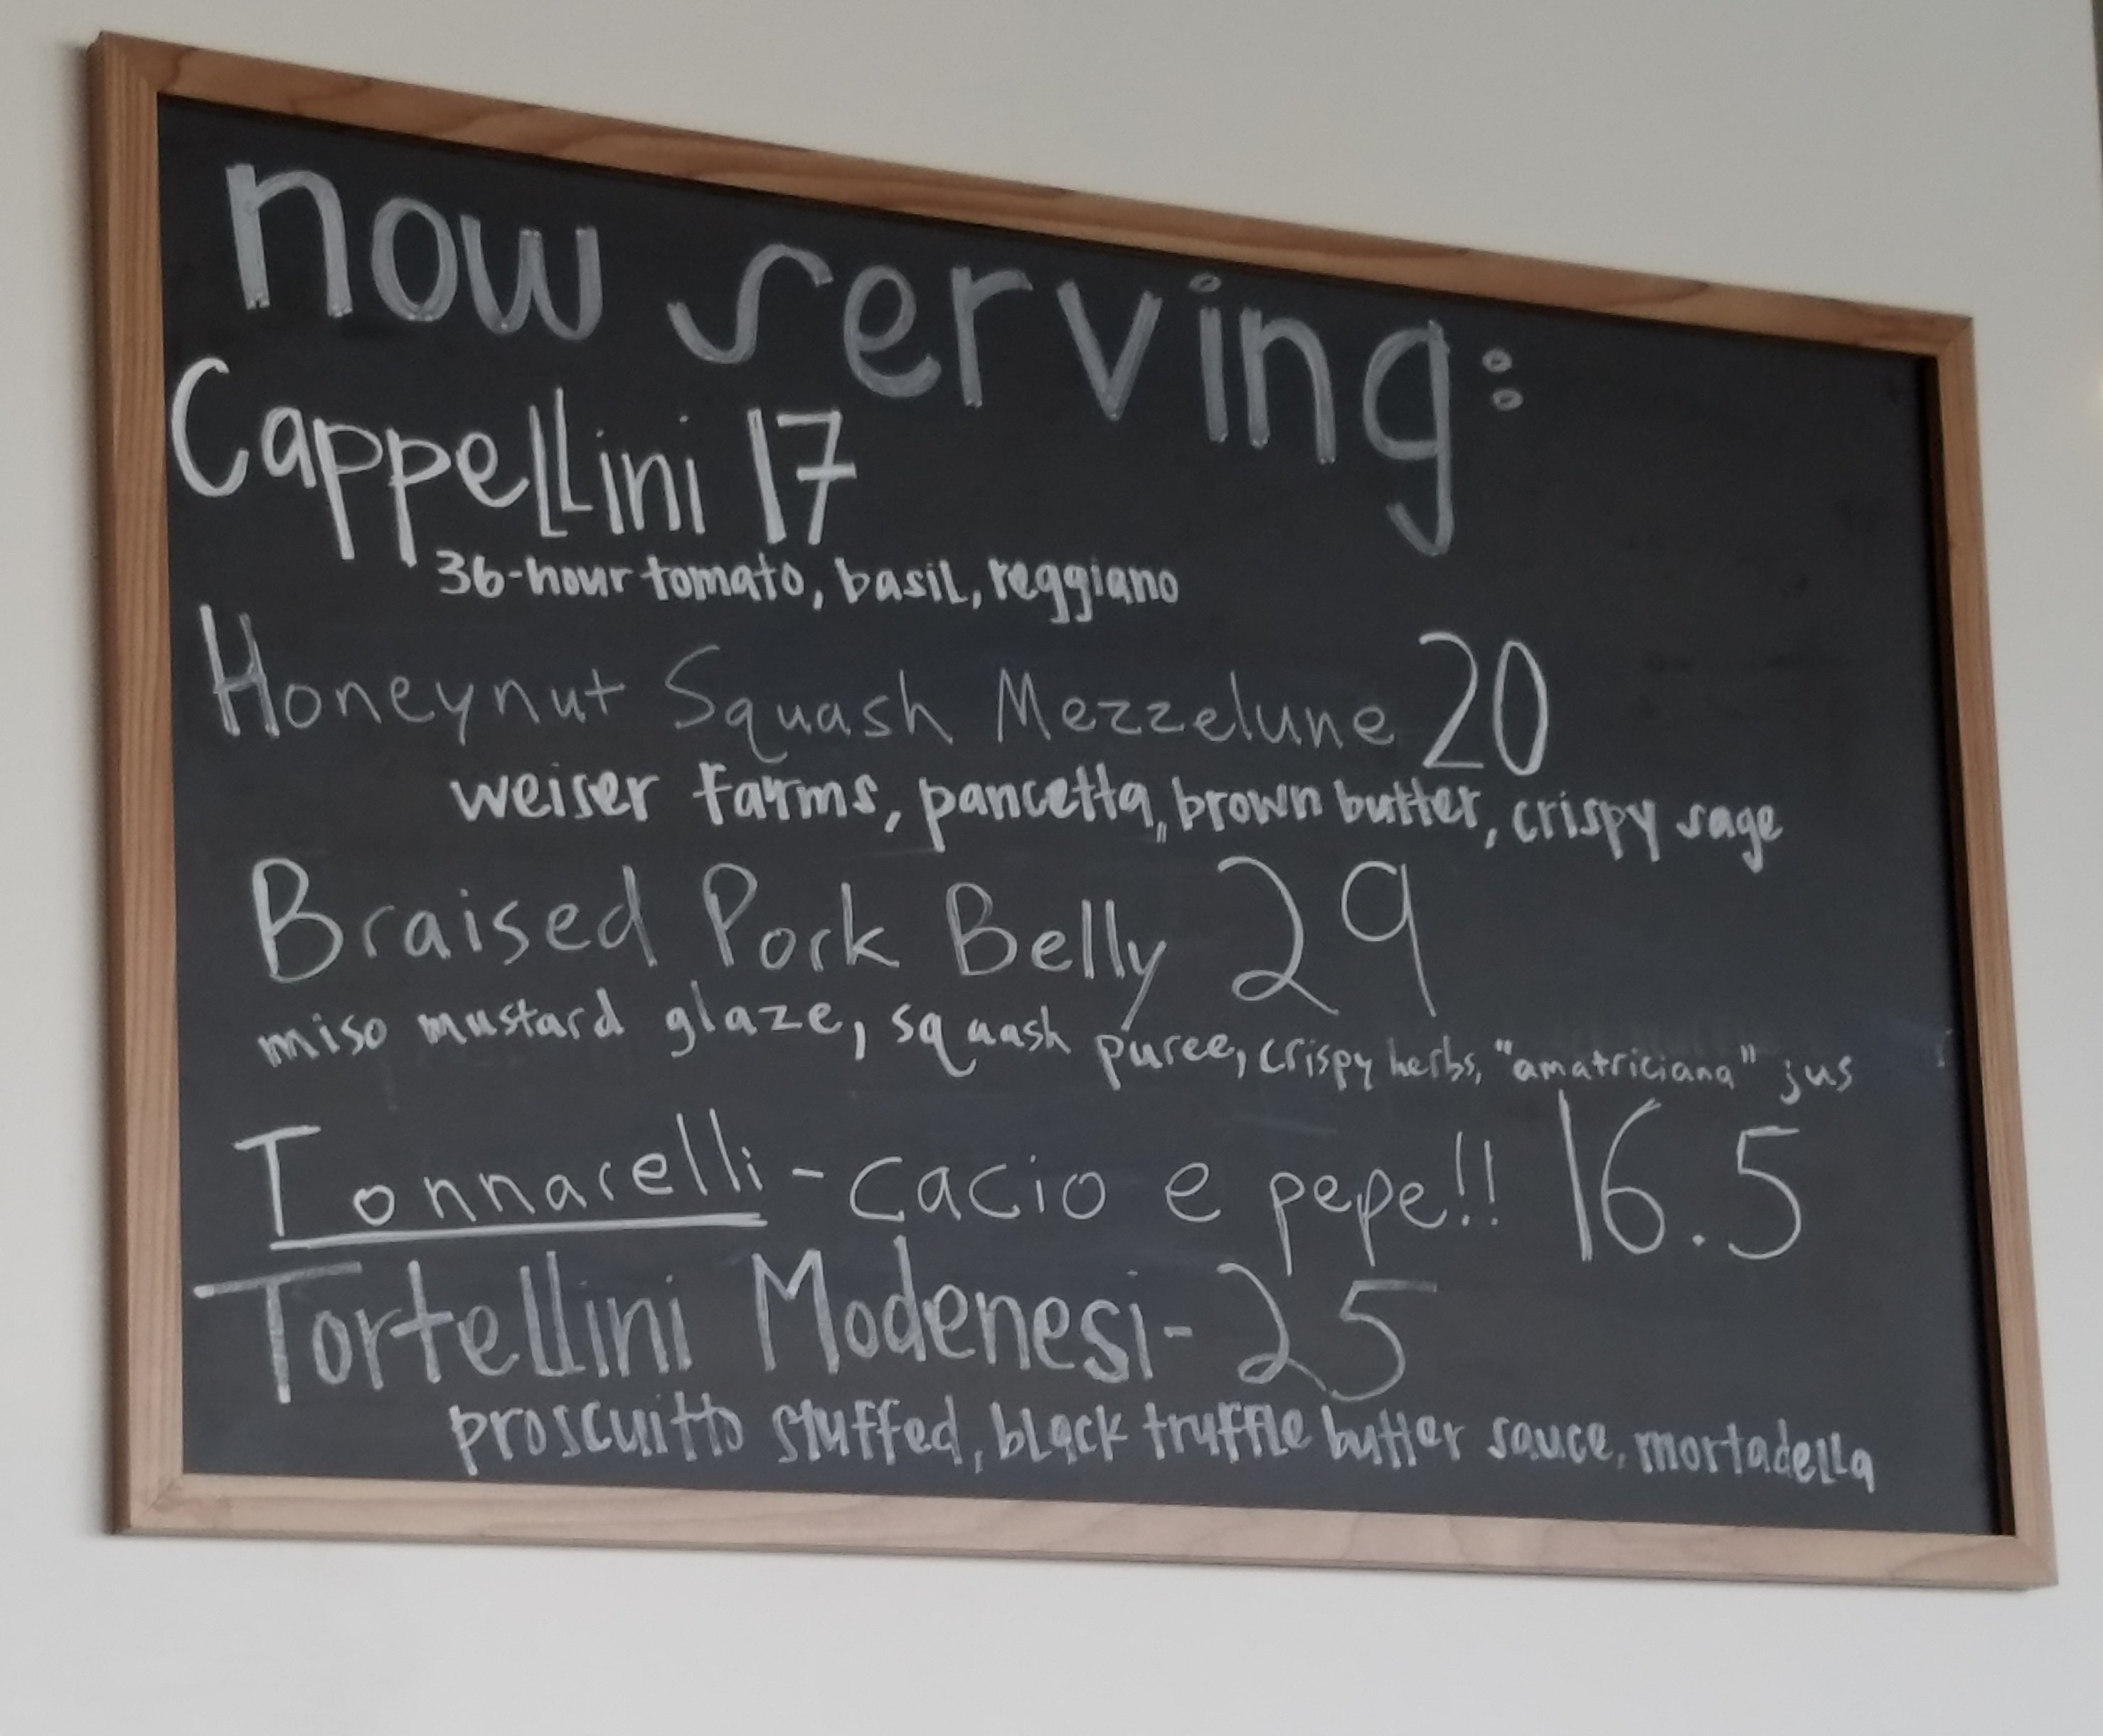 now serving:
Cappellini 17
36-hour tomato, basil, reggiano
Honeynut Squash Mezzelune 20
weiser farms, pancetta,, brown butter, crispy sage
Braised Pork Belly 29
miso mustard glaze, squash puree, crispy herbs, "amatriciana" jus
Tonnarelli - cacio e pepe!! 16.5
Tortellini Modenesi - 25
proscuitto stuffed, black truffle butter sauce, mortadella